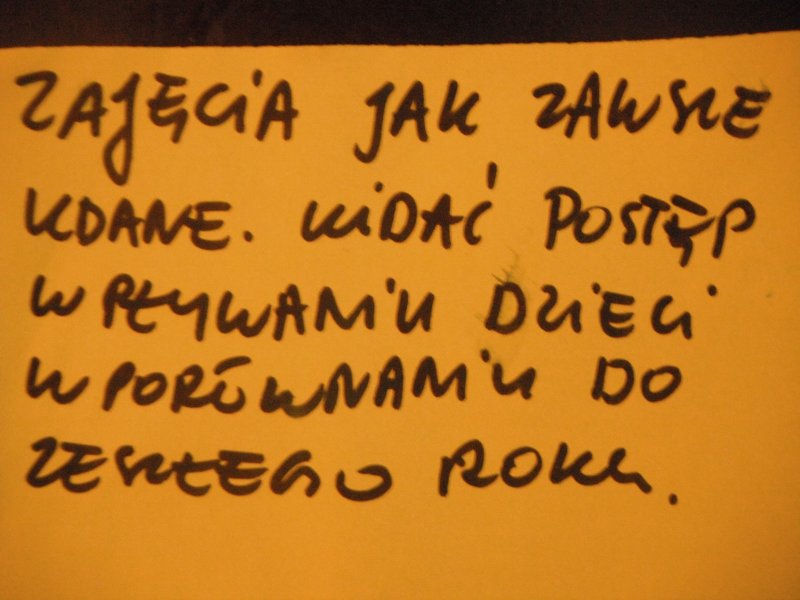 ZAJĘCIA JAK ZAWSZE
UDANE. WIDAĆ POSTĘP
W PŁYWANIU DZIECI
W PORÓWNANIU DO
ZESZŁEGO ROKU.